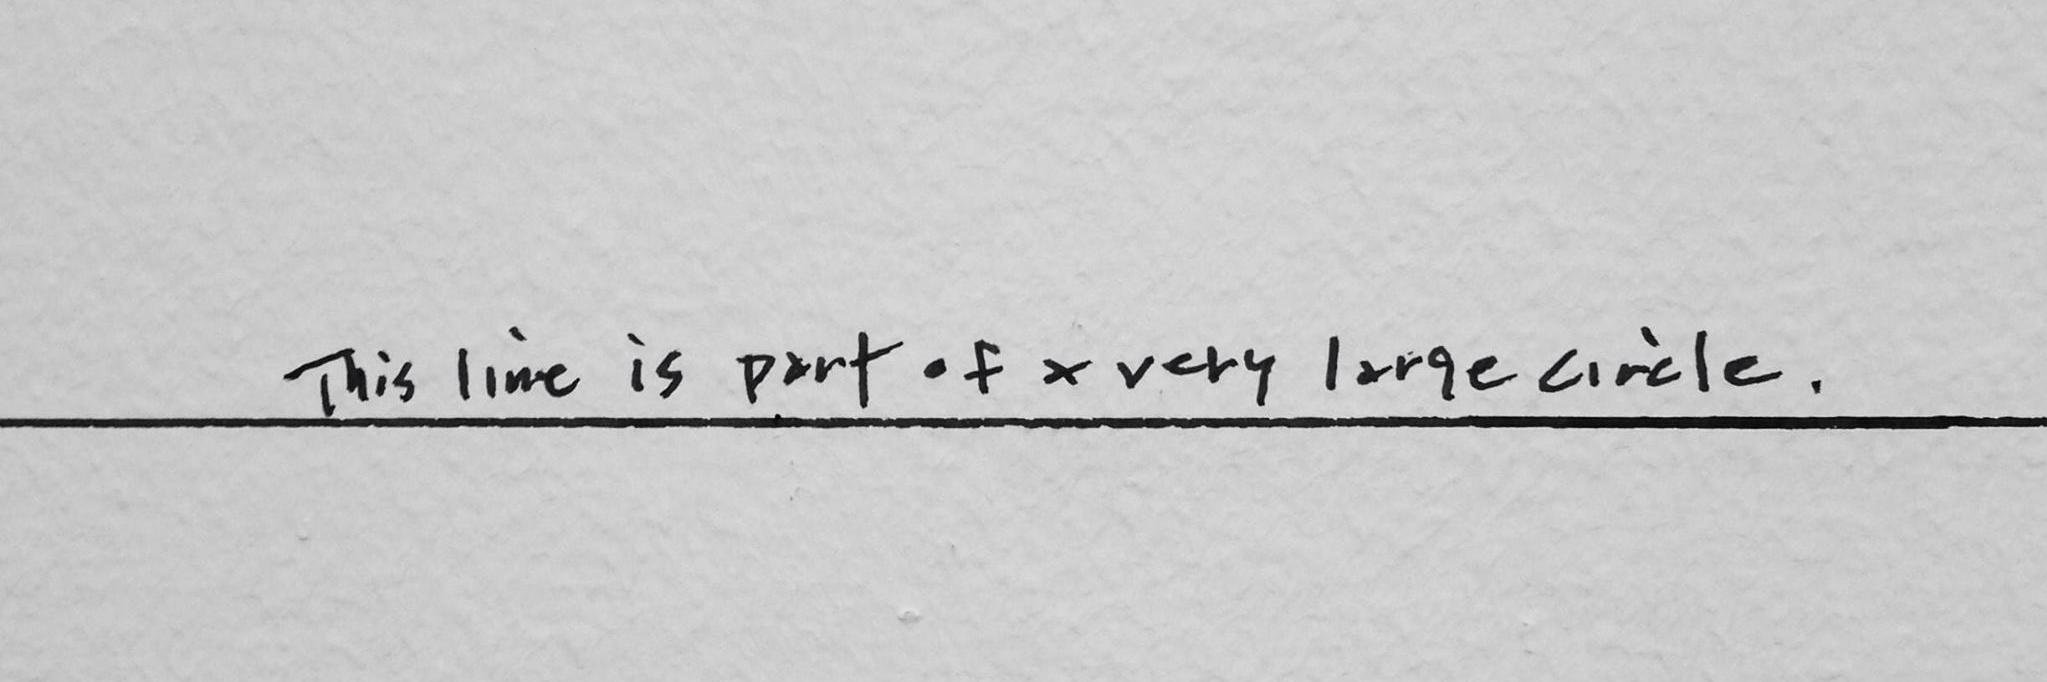 This line is part of a very large circle.